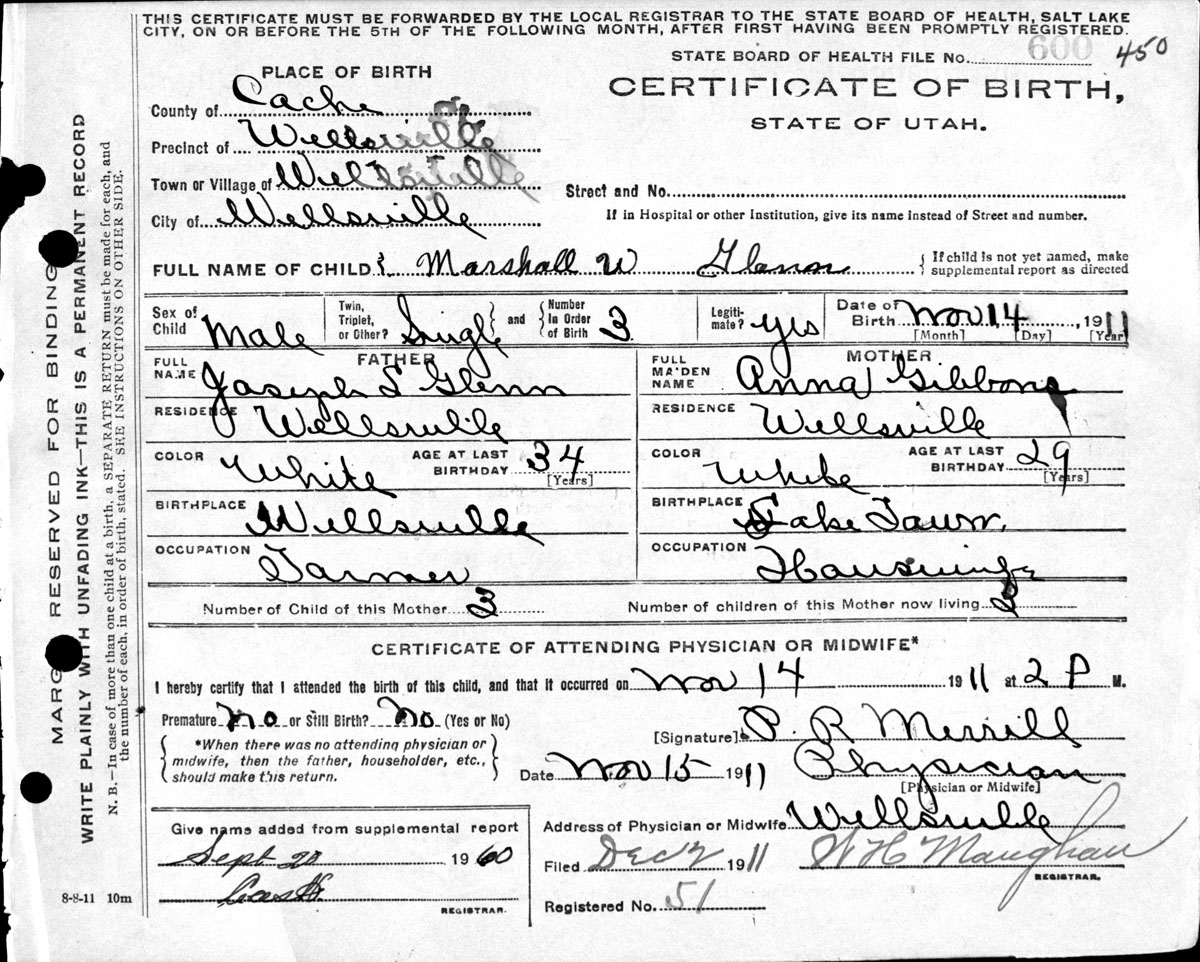 THIS CERTIFICATE MUST BE FORWARDED BY THE LOCAL REGISTRAR TO THE STATE BOARD OF HEALTH, SALT LAKE
CITY, ON OR BEFORE THE 5TH OF THE FOLLOWING MONTH, AFTER FIRST HAVING BEEN PROMPTLY REGISTERED.
STATE BOARD OF HEALTH FILE No. 600 450
PLACE OF BIRTH
CERTIFICATE OF BIRTH,
STATE OF UTAH.
County of Cache
Precinct of Wellsville
Town or Village of Wellsville
Street and No.
City of Wellsville
If in Hospital or other Institution, give its name instead of Street and number.
FULL NAME OF CHILD { Marshall W Glenn { If child is not yet named, make
supplemental report as directed
Sex of Child Male Twin, Triplet, or Other? Singl } and { Number In Order of Birth 3 Legiti-mate? yes Date of Birth Nov 14, 1911
[Month] [Day] [Year]
FATHER MOTHER
FULL NAME Joseph S Glenn FULL MAIDEN NAME Anna Gibbons
RESIDENCE Wellsville RESIDENCE Wellsville
COLOR White AGE AT LAST BIRTHDAY 34 [Years] COLOR White AGE AT LAST BIRTHDAY 29 [Years]
BIRTHPLACE Wellsville BIRTHPLACE Lake Town
OCCUPATION Farmer OCCUPATION Housewife
Number of Child of this Mother 3 Number of children of this Mother now living 3
CERTIFICATE OF ATTENDING PHYSICIAN OR MIDWIFE*
I hereby certify that I attended the birth of this child, and that it occurred on Nov 14 1911 at 2 P M.
Premature No or Still Birth? No (Yes or No)
[Signature] P. R Merrill
{ *When there was no attending physician or
midwife, then the father, householder, etc.,
should make this return. }
Date Nov 15 1911 Physician
[Physician or Midwife]
Address of Physician or Midwife Wellsville
Give name added from supplemental report
Sept 20 1960
REGISTRAR.
Filed Dec 2 1911 W H Maughan
REGISTRAR.
Registered No. 51
8-8-11 10m
MARGIN RESERVED FOR BINDING
WRITE PLAINLY WITH UNFADING INK—THIS IS A PERMANENT RECORD
N. B.—In case of more than one child at a birth, a SEPARATE RETURN must be made for each, and
the number of each, in order of birth, stated. SEE INSTRUCTIONS ON OTHER SIDE.